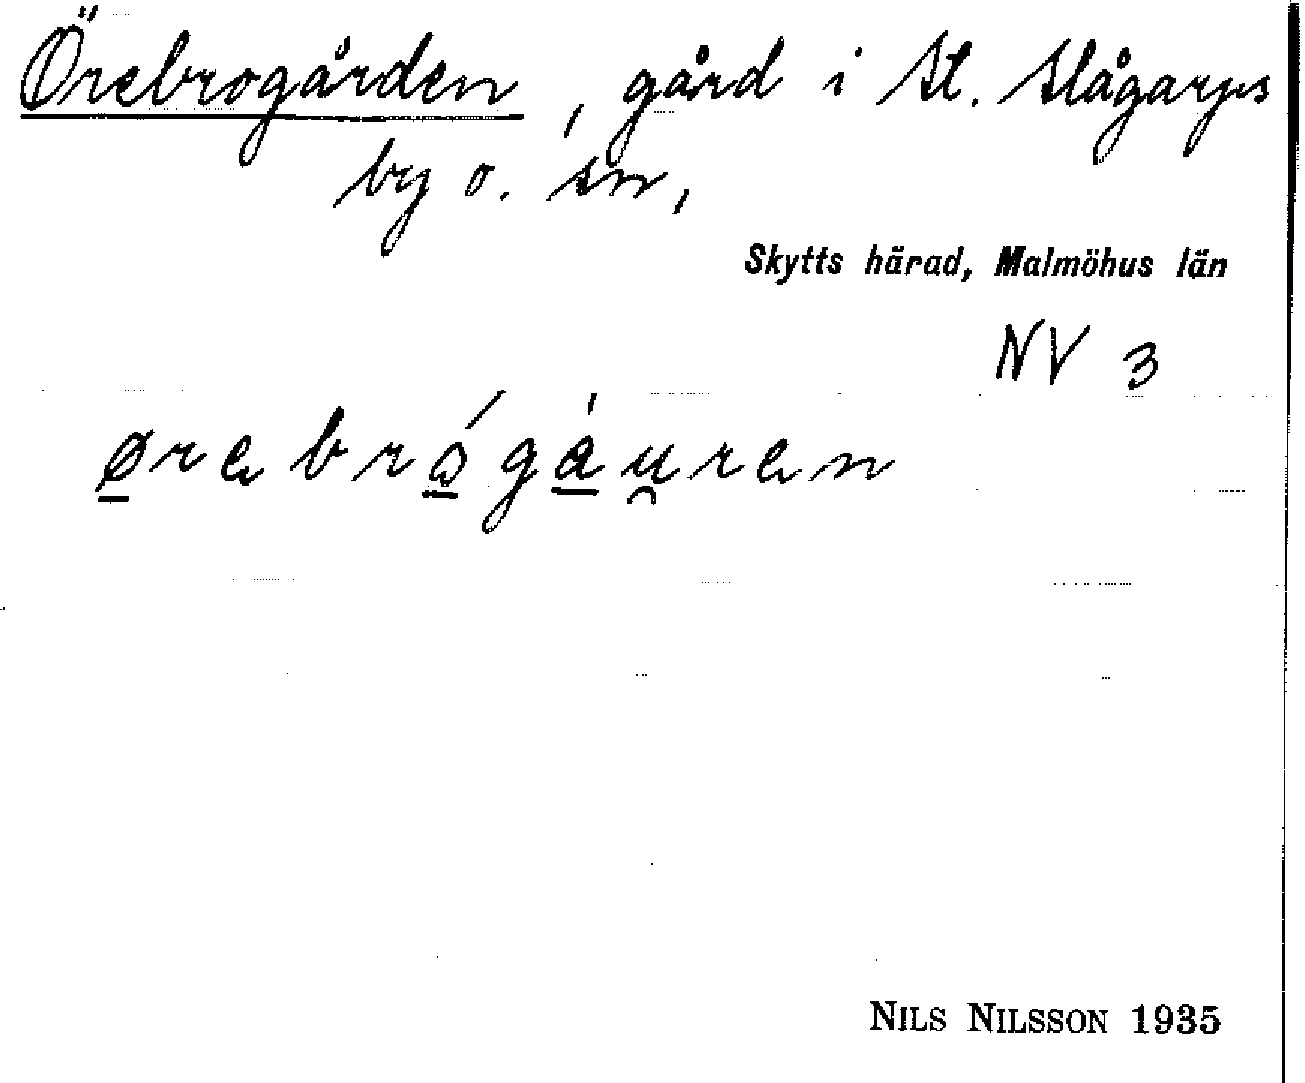 Örebrogården, gård i St. Slågarps
by o. sn,
Skytts härad, Malmöhus län
NV 3
ørebrógáu̯ren
NILS NILSSON 1935